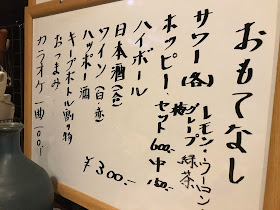 おもてなし
サワー(各) レモン・ウーロン
梅 グレープ 緑茶
ホッピー・セット600 中150.-
ハイボール
日本酒(各)
ワイン(白・赤)
ハッポー酒
キープボトル割り物
おつまみ
カラオケ一曲100.-
¥300.-